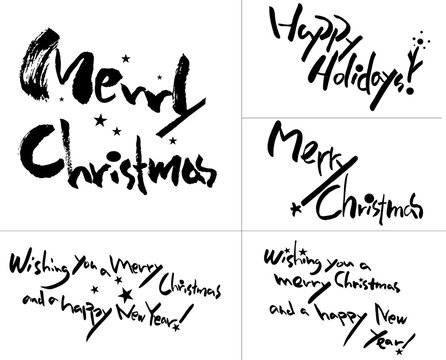 Merry
Christmas
Happy
Holidays!
Merry
Christmas
Wishing you a Merry Christmas
and a happy New Year!
Wishing you a
merry Christmas
and a happy New
Year!